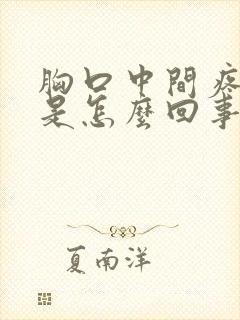 胸口中間疼
是怎麼回事
夏南洋